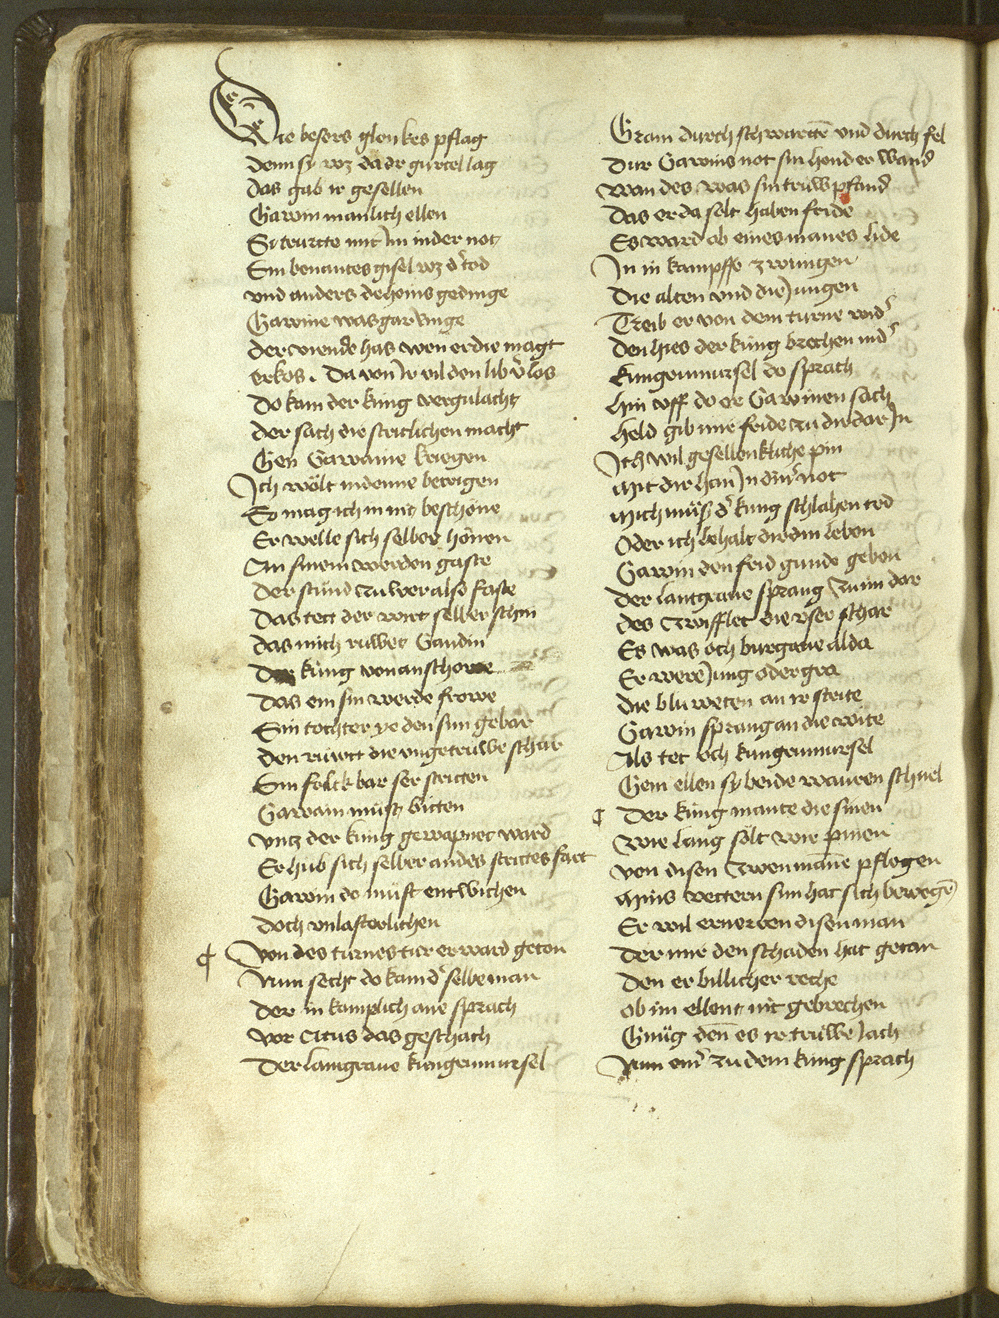 Die besers glenkes pflag
denn sy wz da dr gurtel lag
das gab ir gesellen
Gawin manlich ellen
Si turtte mit im in der not
Sin benantes gisel wz dʼ tod
vnd anders deheins gedinge
Gawine was gar ringe
der viende has wen er die magt
erkos. Da von ir vil den lib vʼlos
Do kam der kung vergulacht
der sach die stritlichen macht
Gen Gawaine kriegen
Ich wolt in denne betrigen
So mag ich in nit beschone
Er welle sich selber hönen
An sinem werden gaste
Der stund zu wer also faste
Das tett der wirt selber schin
das mich ruwet Gandin
Der kung von anschowe
Das ein sin werde frowe
Sin tochter ye den sun gebar
den ruwtt die vngetruwe schar
Sin folck bar ser stritten
Gawain must bitten
vntz der kung gewapnet ward
Er hub sich selber an des strittes fart
Gawin do must entwichen
doch vnlasterlichen
Von des turnes tur er ward geton
Nun secht do kam dʼ selbe man
Der in kamplich ane sprach
vor Artus das geschach
Der lantgraue kungrimursel
Gram durch schwartte vnd durch fel
Dur Gawins not sin hend er wand
wan des was sin truw pfand
Das er da solt haben fride
Es ward ob eines manes lide
In in kampffe zwungen
Die alten vnd die Jungen
Treib er von dem turne widʼ
den hies der kung brechen nidʼ
kungrimursel do sprach
hin vff do er Gawinen sach
held gib mir fride zu dir dar In
Ich wil gesellenkliche pin
Mit dir han In dinʼ not
Mich mus dʼ kung schlahen tod
Oder ich behalt dir din leben
Gawin den frid gunde geben
der lantgraue sprang zu im dar
des zwifflet die vser schar
Es was och burgraue alda
Er were Jung oder gra
die bluweten an ir strite
Gawin sprang an die wite
Als tet och kungrimursel
Gem ellen sy beide wauren schnel
Der kung mante die sinen
wie lang solt wir pinen
von disen zwein mane pflegen
Mins vettern sun hat sich bewegē
Er wil ernerren disen man
der mir den schaden hat getan
den er billicher reche
ob im ellent nit gebreche
Gnug den es ir truwe Jach
Nun einʼ zu dem kung sprach